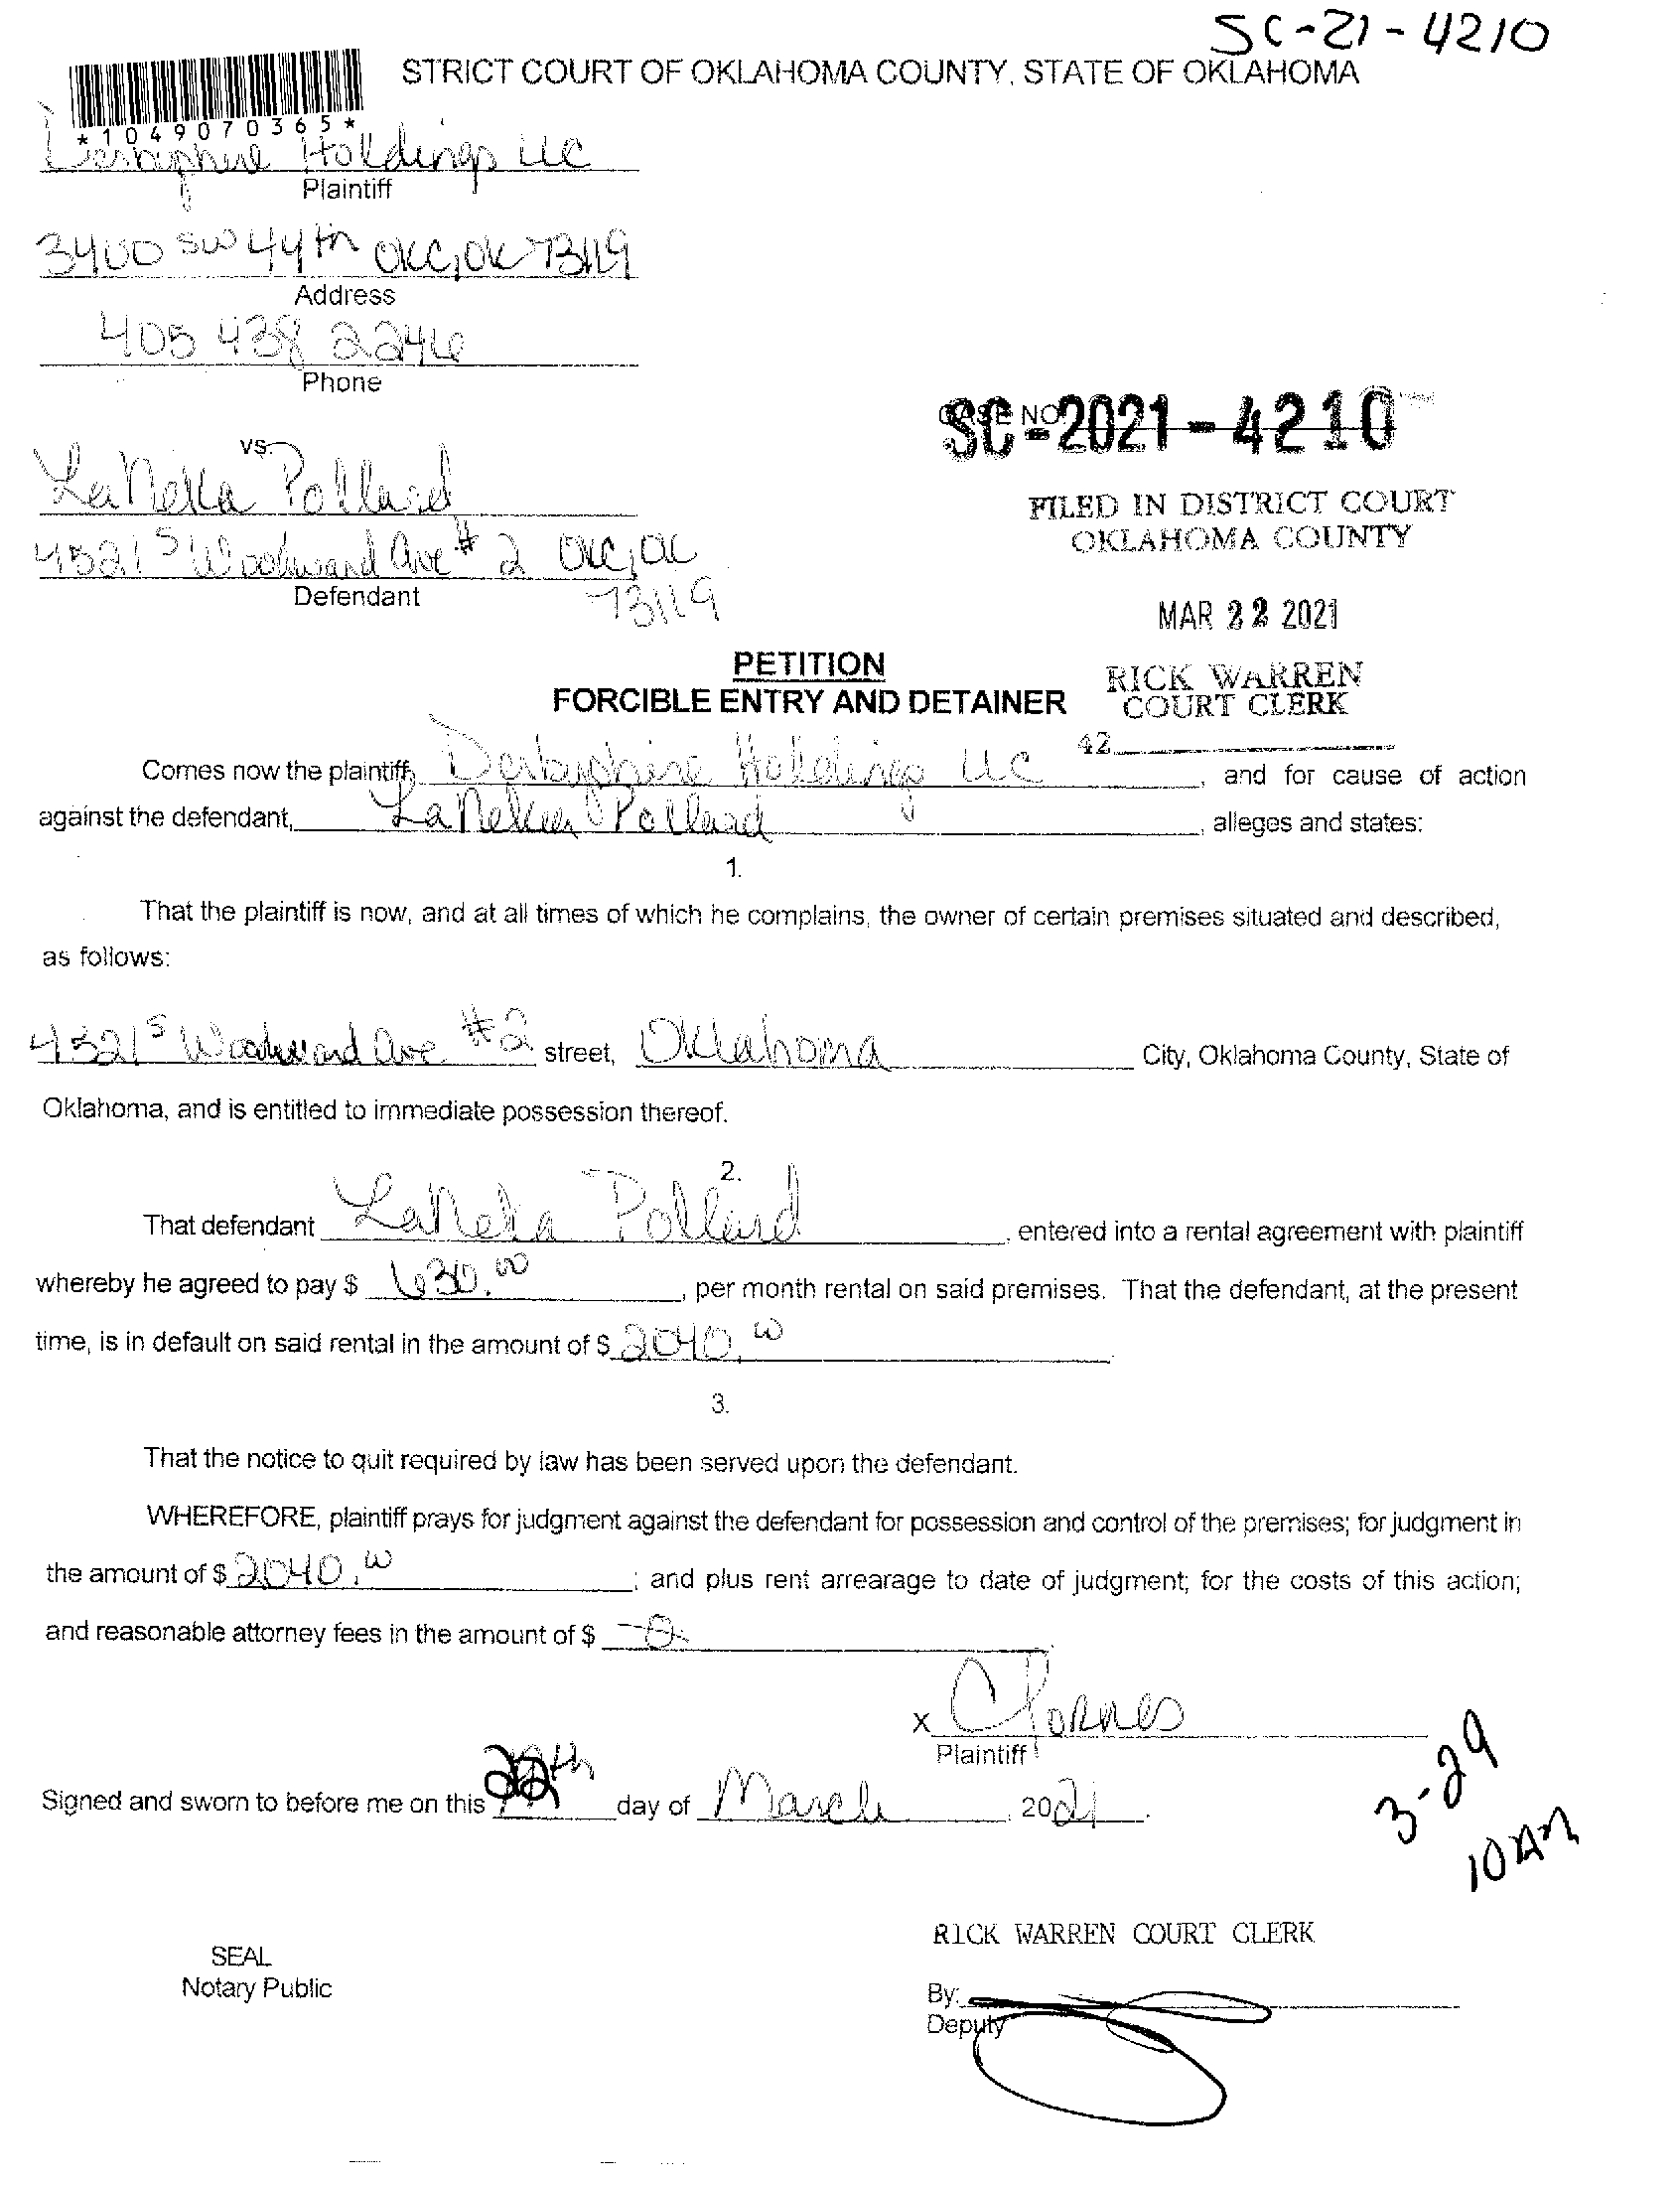 SC-21-4210
STRICT COURT OF OKLAHOMA COUNTY, STATE OF OKLAHOMA
*1049070365*
Derbyshire Holdings LLC
Plaintiff
3400 SW 44th OKC, OK 73119
Address
405 438 2246
Phone
CASE NO.
SC-2021-4210
vs.
LaNeka Pollard
FILED IN DISTRICT COURT
OKLAHOMA COUNTY
S Woodward Ave # 2 OKC, OK
Defendant
73119
MAR 22 2021
PETITION
FORCIBLE ENTRY AND DETAINER
RICK WARREN
COURT CLERK
42
Comes now the plaintiff, Derbyshire Holdings LLC, and for cause of action
against the defendant, Pollard, alleges and states:
1.
That the plaintiff is now, and at all times of which he complains, the owner of certain premises situated and described,
as follows:
S Woodward Ave #2 street, Oklahoma City, Oklahoma County, State of
Oklahoma, and is entitled to immediate possession thereof.
2.
That defendant LaNeka Pollard, entered into a rental agreement with plaintiff
whereby he agreed to pay $ 630.00, per month rental on said premises. That the defendant, at the present
time, is in default on said rental in the amount of $ 2040.00.
3.
That the notice to quit required by law has been served upon the defendant.
WHEREFORE, plaintiff prays for judgment against the defendant for possession and control of the premises; for judgment in
the amount of $ 2040.00; and plus rent arrearage to date of judgment; for the costs of this action;
and reasonable attorney fees in the amount of $ -0-
x
Plaintiff
Signed and sworn to before me on this 22th day of March, 2021.
3-29
10AM
RICK WARREN COURT CLERK
SEAL
Notary Public
By:
Deputy